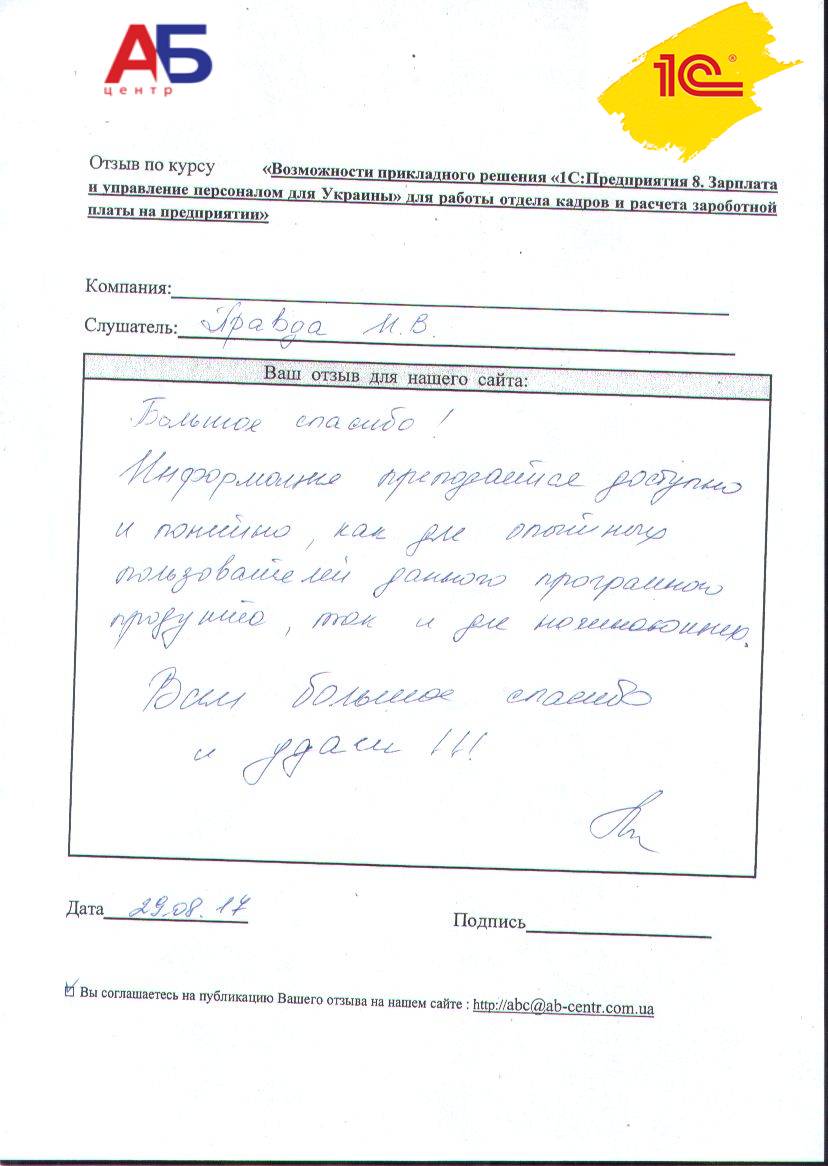 АБ
центр
1С®
Отзыв по курсу «Возможности прикладного решения «1С:Предприятия 8. Зарплата
и управление персоналом для Украины» для работы отдела кадров и расчета зароботной
платы на предприятии»
Компания:
Слушатель: Правда Н.В.
Ваш отзыв для нашего сайта:
Большое спасибо!
Информация преподается доступно
и понятно, как для опытных
пользователей данного програмного
продукта, так и для начинающих.
Вам большое спасибо
и удачи !!!
Дата 29.08.17
Подпись
Вы соглашаетесь на публикацию Вашего отзыва на нашем сайте : http://abc@ab-centr.com.ua